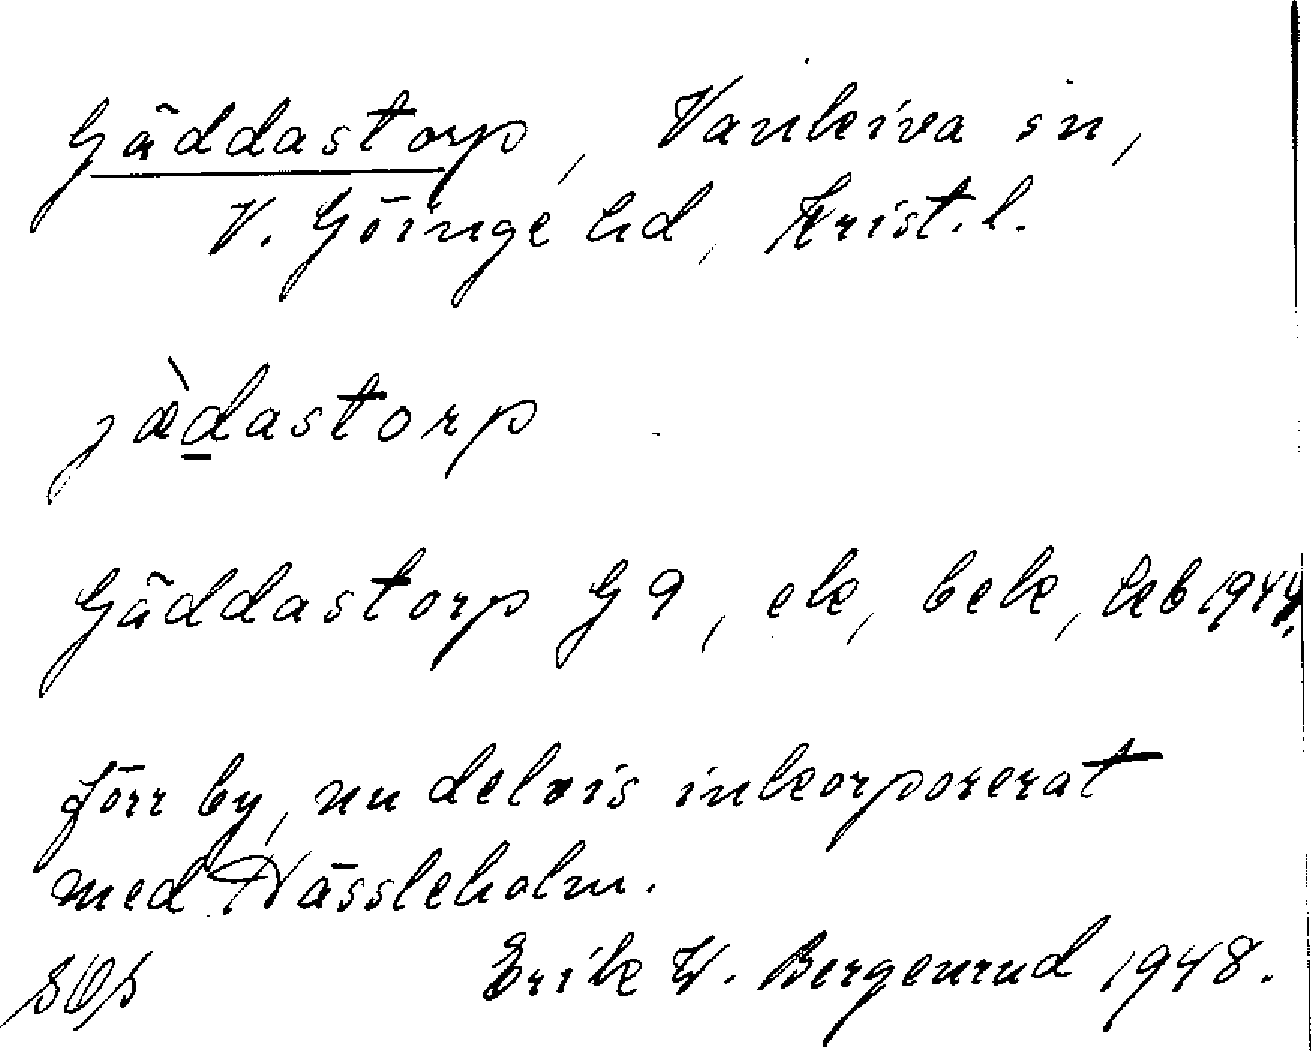 Gäddastorp, Vankiva sn,
V. Göinge hd, Krist. l.
jæ̀dastorp
Gäddastorp G 9, ek, bek, Jeb 1944.
förr by, nu delvis inkorporerat
med Hässleholm.
Erik W. Bergenrud 1948.